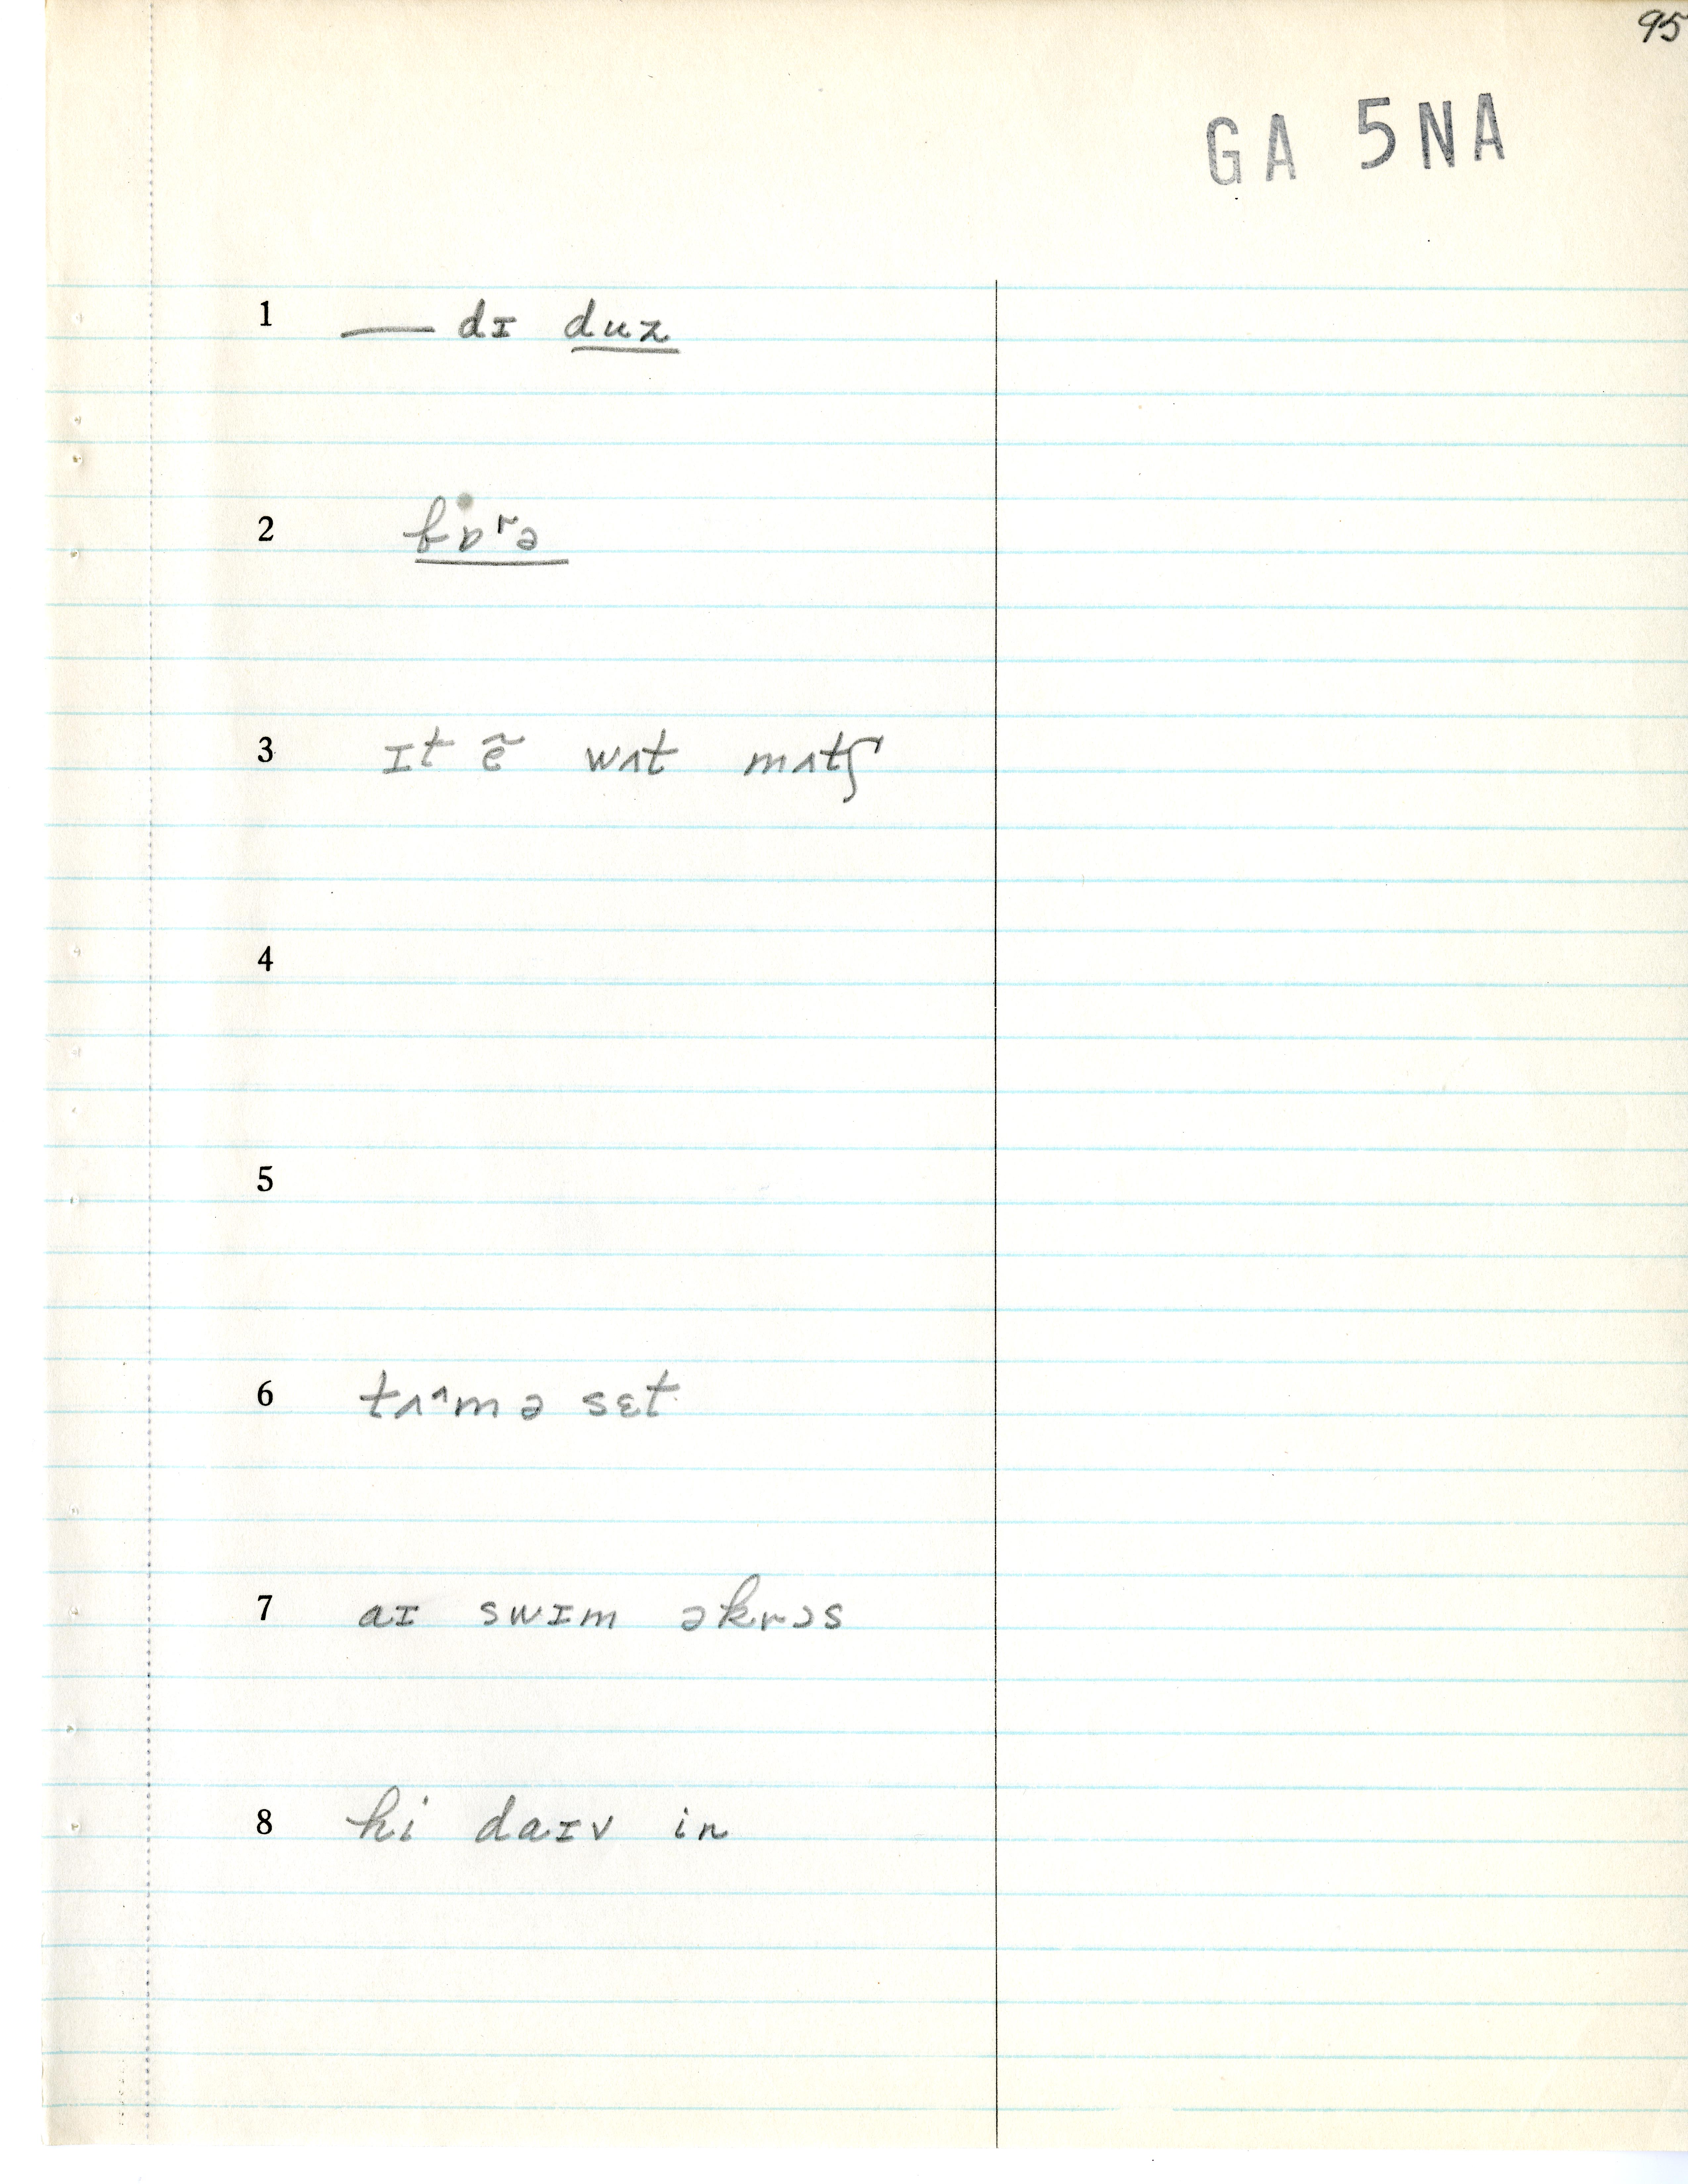 95
GA 5NA
1 — dɪ duz
2 fɒʳə
3 ɪt ẽ wʌt mʌtʃ
4
5
6 tʌ^m ə sɛt
7 aɪ swɪm əkrɔs
8 hi daɪv in